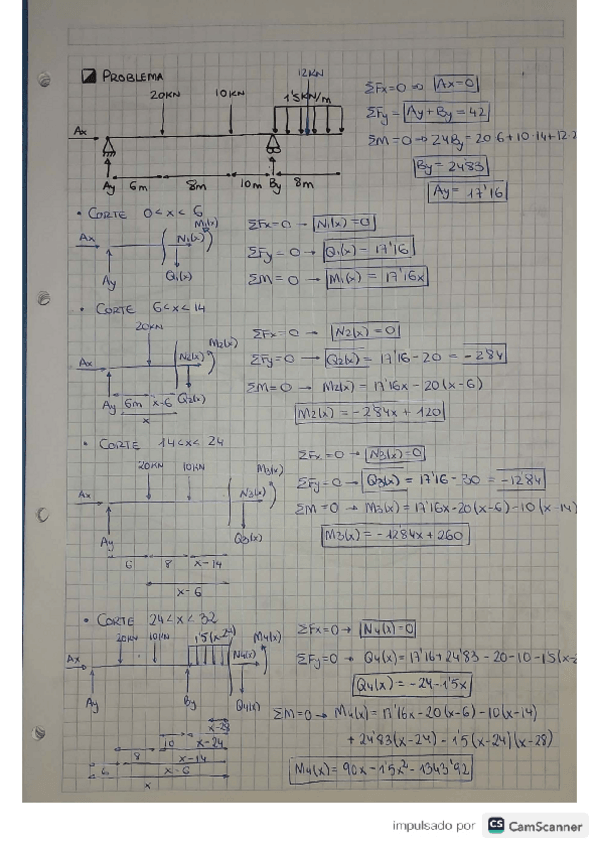 PROBLEMA
12KN
20KN 10KN 1'5KN/m
Ax
Ay 6m 8m 10m By 8m
ΣFx=0 ⇒ Ax=0
ΣFy= Ay+By=42
ΣM=0 → 24By=20·6+10·14+12·2
By=24'83
Ay= 17'16
• CORTE 0<x<6
Ax M1(x) N1(x)
Ay Q1(x)
ΣFx=0 → N1(x)=0
ΣFy=0 → Q1(x)=17'16
ΣM=0 → M1(x)=17'16x
• CORTE 6<x<14
20KN
Ax N2(x) M2(x)
Ay 6m x-6 Q2(x)
x
ΣFx=0 → N2(x)=0
ΣFy=0 → Q2(x)=17'16-20=-2'84
ΣM=0 → M2(x)=17'16x-20(x-6)
M2(x)=-2'84x+120
• CORTE 14<x<24
20KN 10KN M3(x)
Ax N3(x)
Ay Q3(x)
6 8 x-14
x-6
ΣFx=0 → N3(x)=0
ΣFy=0 → Q3(x)=17'16-30=-12'84
ΣM=0 → M3(x)=17'16x-20(x-6)-10(x-14)
M3(x)=-12'84x+260
• CORTE 24<x<32
20KN 10KN M4(x)
Ax N4(x)
Ay By Q4(x)
x-28
10 x-24
8 x-14
6 x-6
x
ΣFx=0 → N4(x)=0
ΣFy=0 → Q4(x)=17'16+24'83-20-10-1'5(x-2
Q4(x)=-24-1'5x
ΣM=0 → M4(x)=17'16x-20(x-6)-10(x-14)
+24'83(x-24)-1'5(x-24)(x-28)
M4(x)=90x-1'5x²-1343'92
impulsado por CS CamScanner